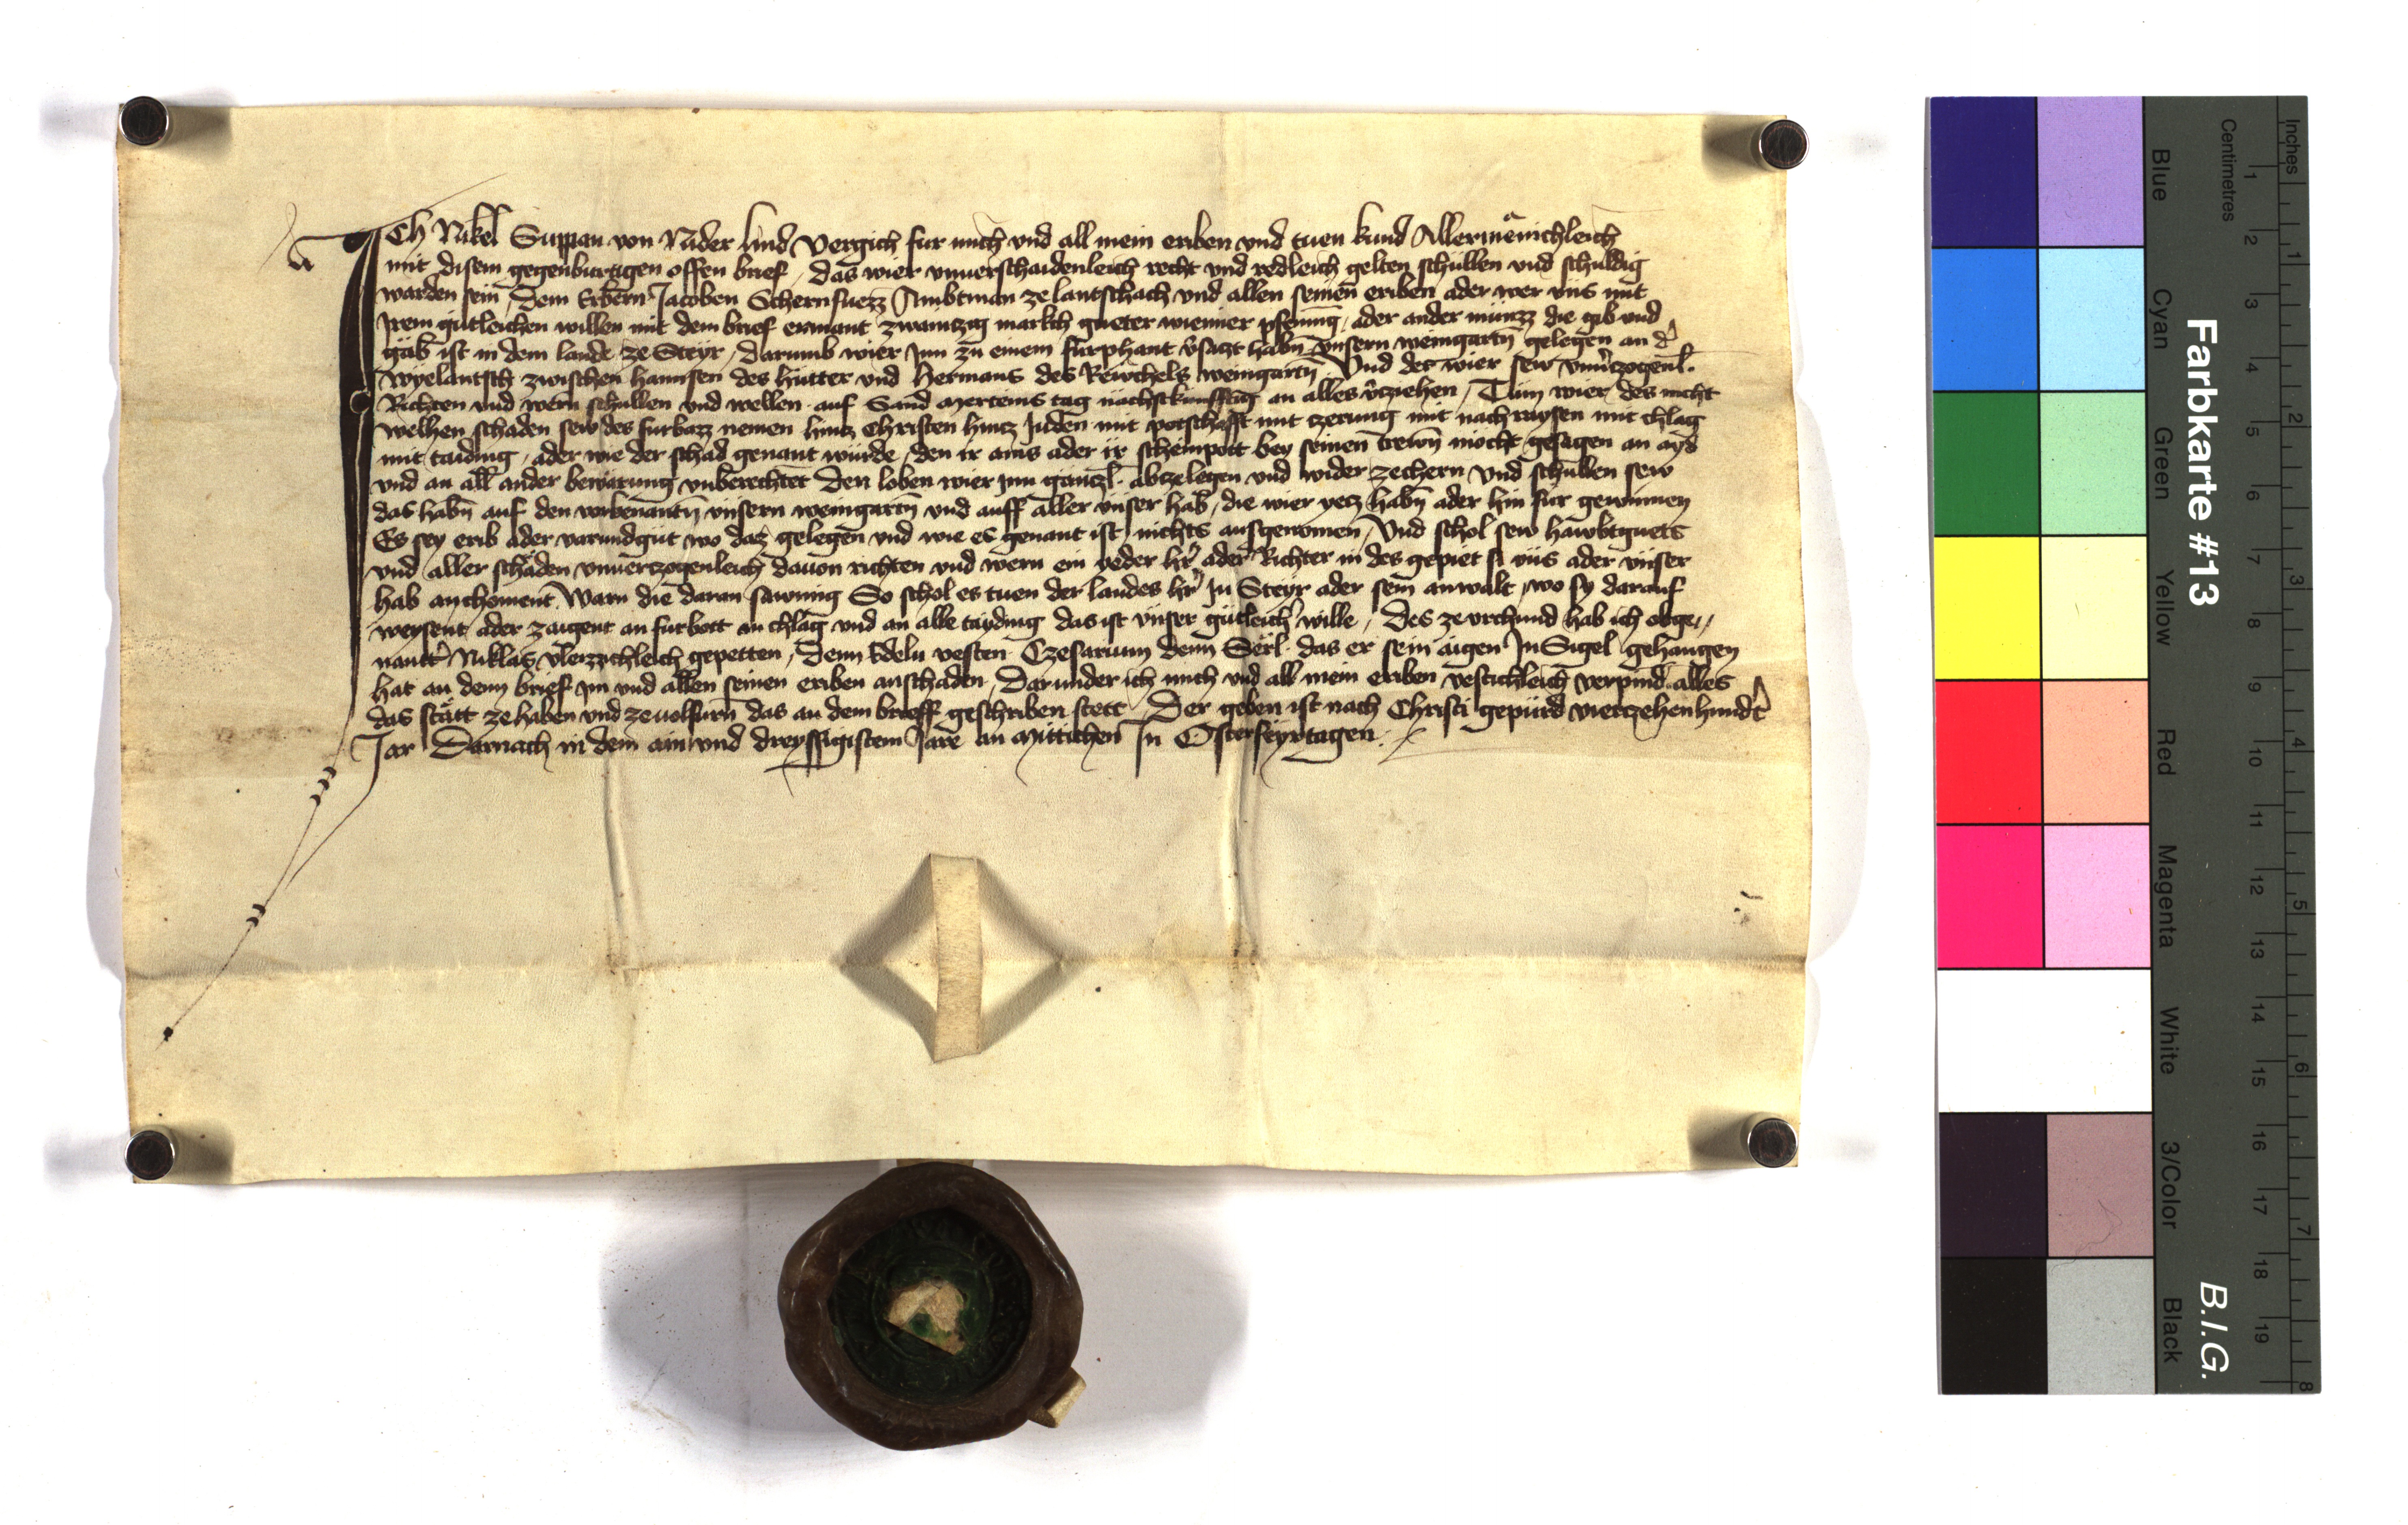 Ich Nikel Suppan von Nider lind Vergich fur mich vnd all mein eriben vnd tuen kund Allermenichleich
mit disem gegenburtigen offen brief, das wier vnuerschaidenleich recht vnd redleich gelten schullen vnd schuldig
warden sein Dem Erbern Jacoben Schernfuezz Ambtman ze lantschach vnd allen seinen eriben ader wer vns mit
Jrem gutleichen willen mit dem brief ermant zwaintzig markch gueter wienner pfening, ader ander munzz die gib vnd
gäb ist in dem lande ze Steyr, darumb wier jnn zu einem furphant v̾saczt habn̄ vnsern weingartn̄ gelegen an d̾
wyelantsch zwischen hannsen des hutter vnd Hermans des Rewchels weingartn̄ Vnd der wier sew vnu̾czogenl.
Richten vnd wern schullen vnd wellen auf Sand mertens tag nachstkunfftig an alles v̾ziehen, Tun wier des nicht
welhen schaden sew des furbazz nemen hincz Christen hincz Juden mit potschafft mit zerung mit nachraysen mit chlag
mit taiding, ader wie der schad genant wurde, den ir ains ader ir schempott bey seinen trewn̄ mocht gesagen an ayd
vnd an all ander bewarung vnberechtet Den loben wier jnn ganczl. abzelegen vnd wider zechern Vnd schullen sew
das habn̄ auf den vorbenantn̄ vnsern weingartn̄ vnd auff aller vnser hab, die wier yecz habn̄ ader hin fur gewinnen
Es sey erib ader varundgut wo daz gelegen vnd wie es genant ist nichts ausgenomen, Vnd schol sew hawbtguets
vnd aller schaden vnuerczogenleich dauon richten vnd wern ein yeder hr̾ ader Richter in des gepiet si vns ader vnser
hab anchoment Warn die daran sawmig So schol es tuen der landes hr̾ Jn Steyr ader sein anwalt, wo sy darauf
weysent ader zaigent an furbott an chlag vnd an alle tayding das ist vnser gutleich̾ wille, Des ze vrchund hab ich obge„
nantt̾ Niklas vleizzichleich gepetten, Denn Edeln vesten Czesarium denn Serl. das er sein aigen Jn Sigel gehangen
hat an denn brief im vnd allen seinen eriben anschaden, Darunder ich mich vnd all mein eriben vestichleich verpind alles
das stätt ze haben vnd ze uolfurn̄ das an dem brieff geschriben stett Der geben ist nach Christi gepurd vierczehenhundt̾
Jar Darnach in dem ain vnd dreyssigistem Jare an Mittichen Jn Osterfeyrtagen.
Farbkarte #13
B.I.G.
Blue
Cyan
Green
Yellow
Red
Magenta
White
3/Color
Black
Centimetres
1 2 3 4 5 6 7 8 9 10 11 12 13 14 15 16 17 18 19
Inches
1 2 3 4 5 6 7 8